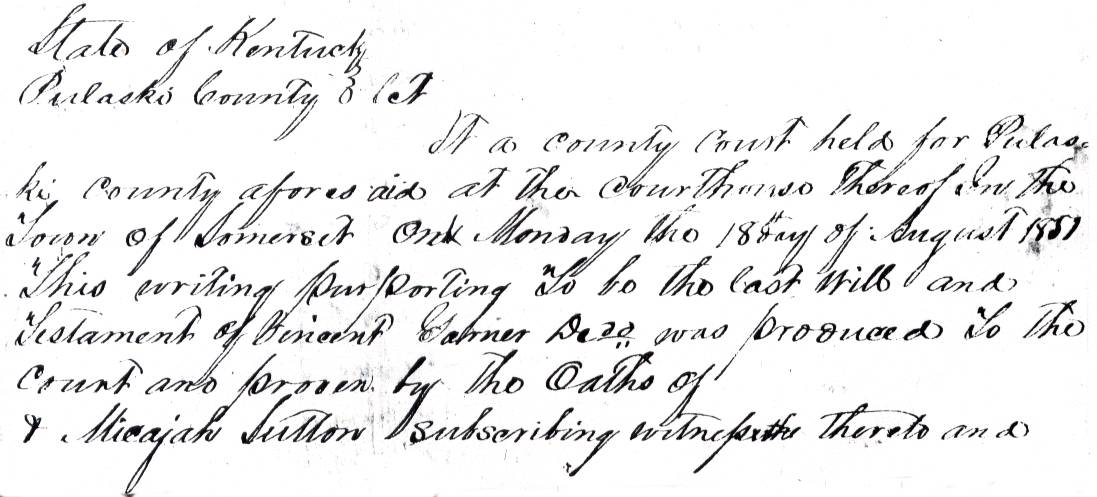 State of Kentucky
Pulaski County & Ct
At a county Court held for Pulas-
ki County aforesaid at the Courthouse Thereof In the
Town of Somerset On Monday the 18th day of August 1851
This writing purporting To be the last Will and
Testament of Vincent Garner Decd was produced To the
Court and proven by the Oaths of
& Micajah Sutton Subscribing witness thereto and